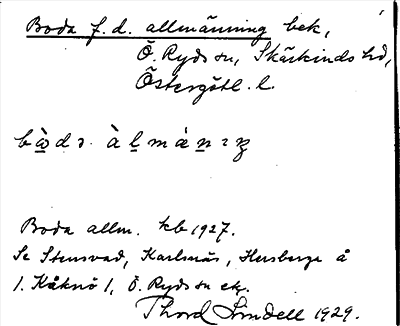 Boda f.d. allmänning bek,
Ö. Ryds sn, Skärkinds hd,
Östergötl. l.
bo̱dɜ. àḻmánɪŋ
Boda allm. kb 1927.
Se Stensvad, Karlsnäs, Hersberga å
1. Kåknö 1, Ö. Ryds sn etc.
Thord Lindell 1929.